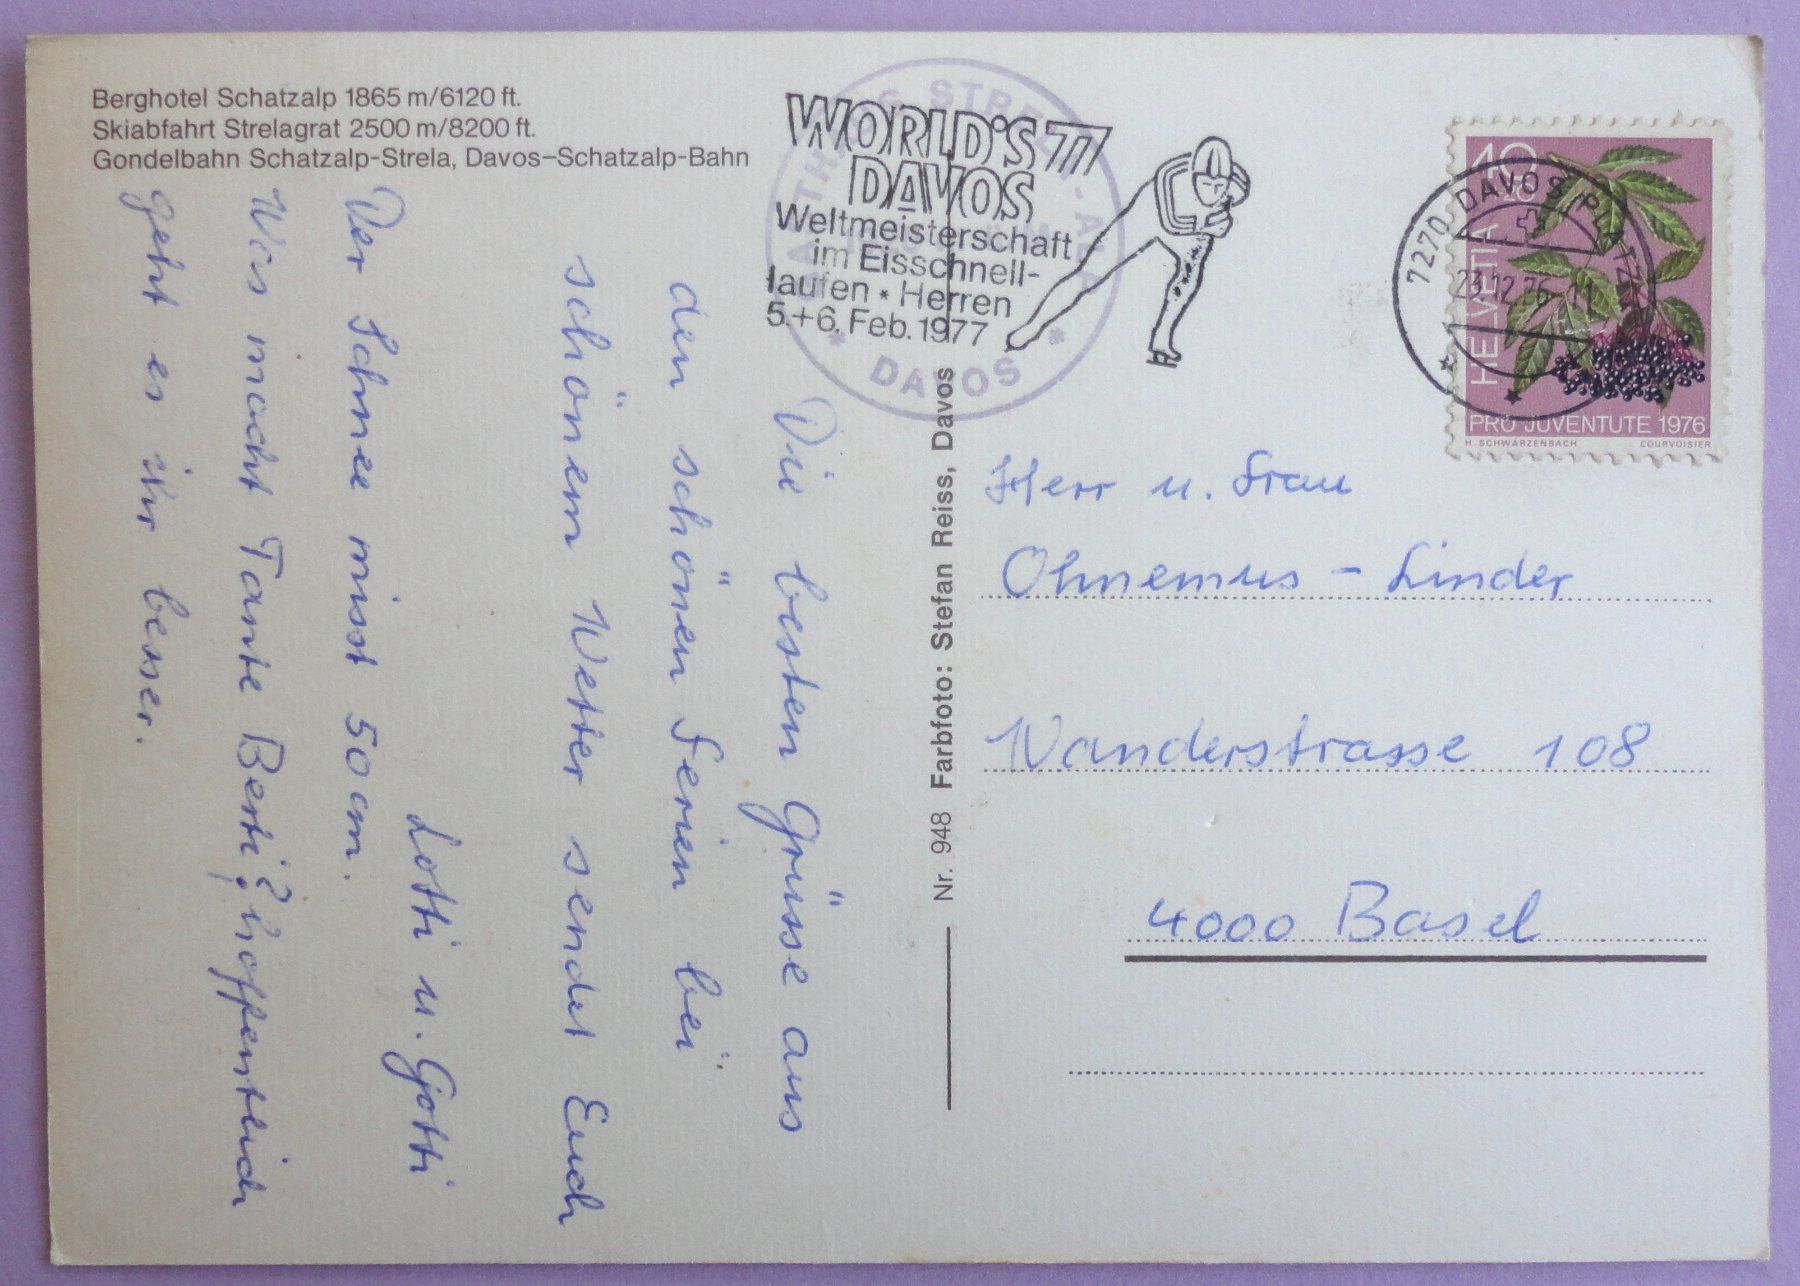 Berghotel Schatzalp 1865 m/6120 ft.
Skiabfahrt Strelagrat 2500 m/8200 ft.
Gondelbahn Schatzalp-Strela, Davos–Schatzalp-Bahn
WORLD'S 77
DAVOS
Weltmeisterschaft
im Eisschnell-
laufen * Herren
5.+6. Feb. 1977
STRELA-
* DAVOS *
7270 DAVOS PLATZ
23.12.76
40
HELVETIA
PRO JUVENTUTE 1976
H. SCHWARZENBACH COURVOISIER
Die besten Grüsse aus
den schönen Ferien bei
schönem Wetter sendet Euch
Lotti u. Gotti
Der Schnee misst 50 cm.
Was macht Tante Berti? hoffentlich
geht es ihr besser.
Nr. 948 Farbfoto: Stefan Reiss, Davos
Herr u. Frau
Ohnemus - Linder
Wanderstrasse 108
4000 Basel